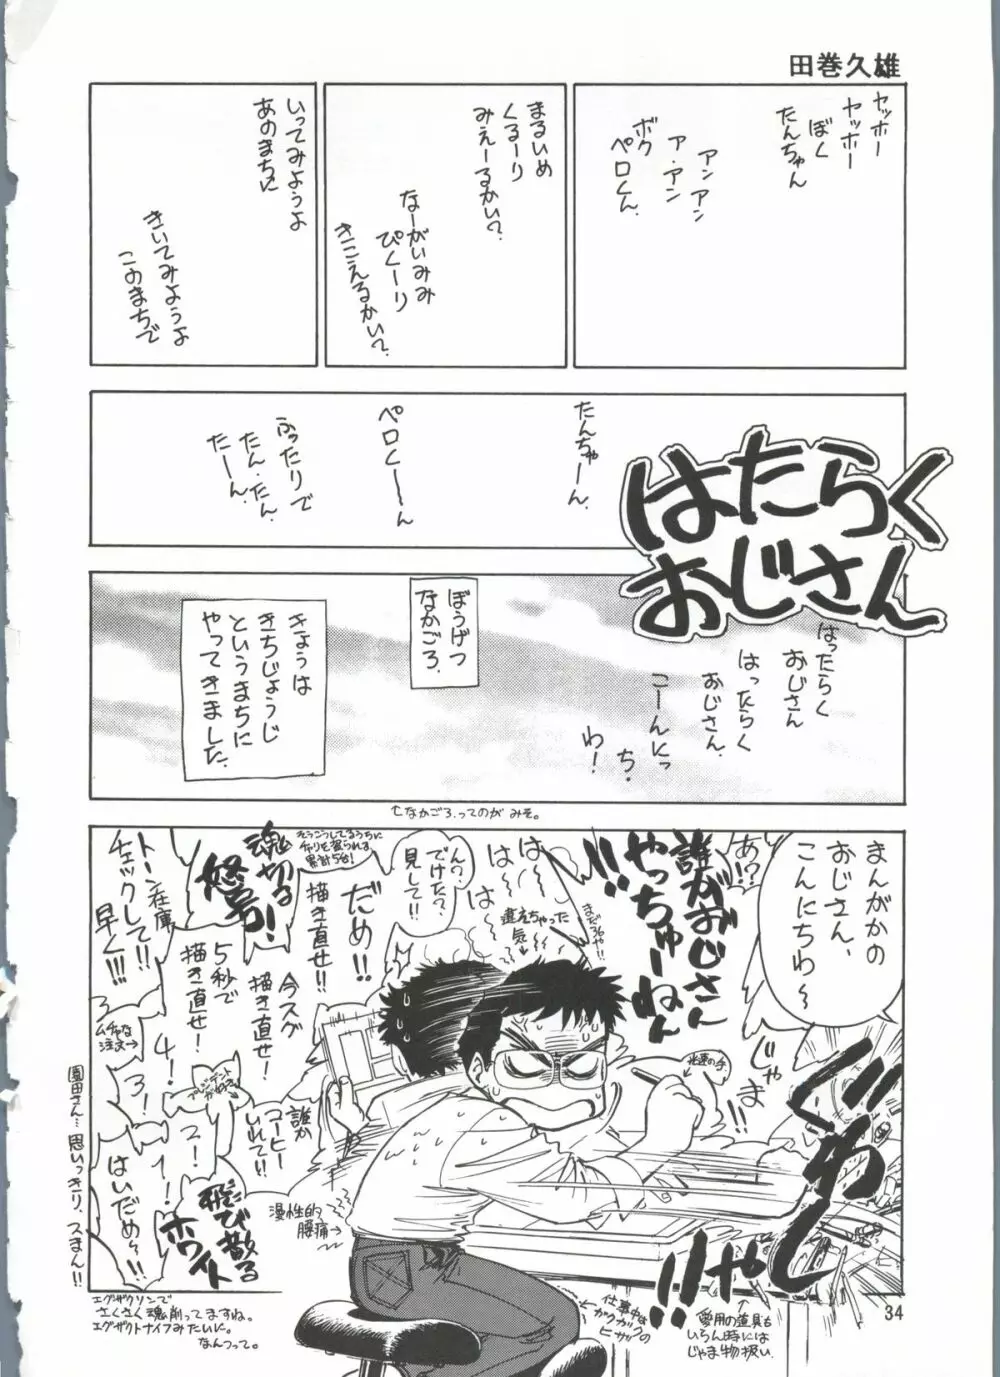 田巻久雄
ヤッホー
ヤッホー
ぼく
たんちゃん
アンアン
ア・アン
ボク
ペロくん.
まるいめ
くるーり
みえーるかい?
なーがいみみ
ぴくーり
きこえるかい?
いってみようよ
あのまちに
きいてみようよ
このまちで
たんちゃーん.
ペロくーーん
ふったりで
たん・たん.
たーん.
はたらく
おじさん
はったらく
おじさん
はったらく
おじさん.
こーんにっ
ち・
わ!
ぼうげつ
なかごろ.
きょうは
きちじょうじ
というまちに
やってきました.
↑なかごろ.ってのが みそ。
まんがかの
おじさん、
こんにちわ〜
あ?!?
誰がおじさん
やっちゅーねん
!!!
まだ36や!!
は〜
は〜
は〜
違えちゃった
気↓
ん?
でけた?
見して!!
そうこうしてるうちに
チャリを盗られる
累計5台!
だめ!!
描き直せ!!
今スグ
描き直せ!
5秒で
描き直せ!
魂切る
怒号!
トーン在庫
チェックして!!
早く!!!
ムチャな
注文→
5!
4!
3!
2!
1!
はいだめ〜!!
誰か
コーヒー
いれて!!
飛び散る
ホワイト
慢性的
腰痛→
光速の手
じゃま!!
ぐわしゃ
!!
や
仕事中は
ガクガクの
ヒザ
愛用の道具も
いらん時には
じゃま物扱い.
園田さん… 思いっきり、スまん!!
エグザクソンで
さくさく魂削ってますね。
エグザクトナイフみたいに。
なんつって。
34